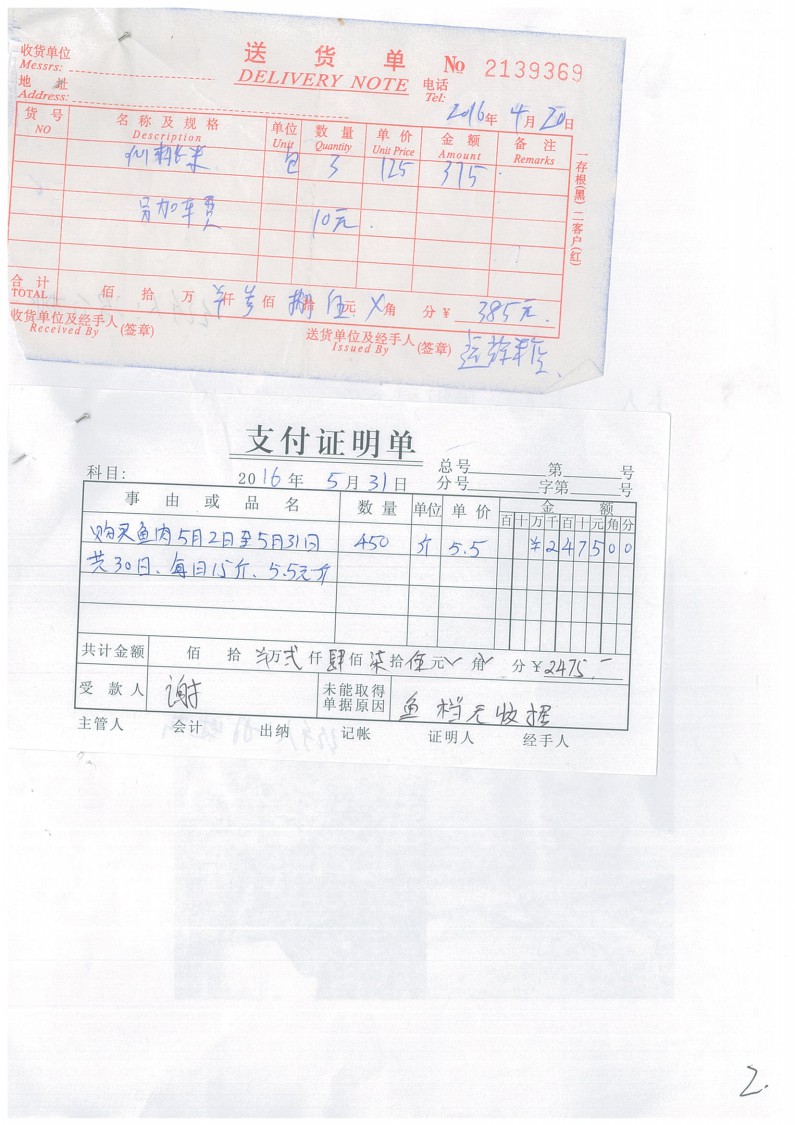 送 货 单
DELIVERY NOTE
No 2139369
收货单位
Messrs:
地 址
Address:
电话
Tel:
2016年 4月 20日
货 号 名 称 及 规 格 单位 数 量 单 价 金 额 备 注
NO Description Unit Quantity Unit Price Amount Remarks
米 包 3 125 375
另加车费 10元
一存根(黑) 二客户(红)
合 计 佰 拾 万 仟 佰 捌拾 伍元 角 分 ¥ 385元.
TOTAL
收货单位及经手人 (签章) 送货单位及经手人 (签章)
Received By Issued By
支付证明单
科目: 2016 年 5 月 31 日
总号 第 号
分号 字第 号
事 由 或 品 名 数 量 单位 单 价 金 额
百 十 万 千 百 十 元 角 分
购买鱼肉5月2日至5月31日 450 斤 5.5 ¥ 2 4 7 5 0 0
共30日、每日15斤、5.5元/斤
共计金额 佰 拾 万 弍仟 肆佰 柒拾 伍元 角 分 ¥2475.-
受 款 人 谢
未能取得
单据原因 鱼档无收据
主管人 会计 出纳 记帐 证明人 经手人
2.